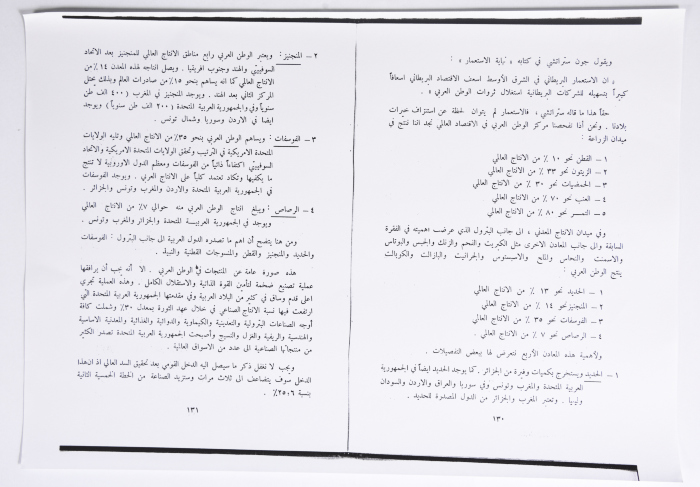 ويقول جون ستراتشي في كتابه « نهاية الاستعمار » :
« ان الاستعمار البريطاني في الشرق الأوسط اسعف الاقتصاد البريطاني اسعافاً
كبيراً بتسهيله للشركات البريطانية استغلال ثروات الوطن العربي » .
حقاً هذا ما قاله ستراتشي ، فالاستعمار لم يتوان لحظة عن استنزاف خيرات
بلادنا . ونحن اذا تفحصنا مركز الوطن العربي في الاقتصاد العالمي نجد اننا ننتج في
ميدان الزراعة :
١ – القطن نحو ١٠ ٪ من الانتاج العالمي
٢ – الزيتون نحو ٣٣ ٪ من الانتاج العالمي
٣ – الحمضيات نحو ٣٠ ٪ من الانتاج العالمي
٤ – العنب نحو ٧٠ ٪ من الانتاج العالمي
٥ – التمـــر نحو ٨٠ ٪ من الانتاج العالمي
وفي ميدان الانتاج المعدني ، الى جانب البترول الذي عرضت اهميته في الفقرة
السابقة والى جانب المعادن الاخرى مثل الكبريت والفحم والزنك والجبس والبوتاس
والاسمنت والنحاس والملح والاسبستوس والجرانيت والبازلت والكوبالت
ينتج الوطن العربي :
١ – الحديد نحو ١٣ ٪ من الانتاج العالمي
٢ – المنجنيزنحو ١٤ ٪ من الانتاج العالمي
٣ – الفوسفات نحو ٣٥ ٪ من الانتاج العالمي
٤ – الرصاص نحو ٧ ٪ من الانتاج العالمي .
ولأهمية هذه المعادن الأربع نتعرض لها ببعض التفصيلات .
١ – الحديد ويستخرج بكميات وفيرة من الجزائر . كما يوجد الحديد ايضاً في الجمهورية
العربية المتحدة والمغرب وتونس وفي سوريا والعراق والاردن والسودان
وليبيا . وتعتبر المغرب والجزائر من الدول المصدرة للحديد .
١٣٠
٢ – المنجنيز : ويعتبر الوطن العربي رابع مناطق الانتاج العالي للمنجنيز بعد الاتحاد
السوفييتي والهند وجنوب افريقيا . ويصل انتاجه لهذه المعدن ١٤ ٪ من
الانتاج العالمي كما انه يساهم بنحو ١٥٪ من صادرات العالم وبذلك يحتل
المركز الثاني بعد الهند . ويوجد المنجنيز في المغرب (٤٠٠ الف طن
سنوياً) وفي والجمهورية العربية المتحدة (٢٠٠ الف طن سنوياً) ويوجد
ايضا في الاردن وسوريا وشمال تونس .
٣ – الفوسفات : ويساهم الوطن العربي بنحو ٣٥٪ من الانتاج العالمي وتليه الولايات
المتحدة الامريكية في الترتيب وتحقق الولايات المتحدة الامريكية والاتحاد
السوفييتي اكتفاءاً ذاتياً من الفوسفات ومعظم الدول الاوروبية لا تنتج
ما يكفيها وتكاد تعتمد كلياً على الانتاج العربي . ويوجد الفوسفات
في الجمهورية العربية المتحدة والاردن والمغرب وتونس والجزائر .
٤ – الرصاص : ويبلغ انتاج الوطن العربي منه حوالي ٧٪ من الانتاج العالمي
ويوجد في الجمهورية العربيـــة المتحدة والجزائر والمغرب وتونس .
ومن هنا يتضح أن اهم ما تصدره الدول العربية الى جانب البترول : الفوسفات
والحديد والمنجنيز والقطن والمنسوجات القطنية والنبيذ .
هذه صورة عامة عن المنتجات في الوطن العربي . الا أنه يجب أن يرافقها
عملية تصنيع ضخمة لتأمين القوة الذاتية والاستقلال الكامل . وهذه العملية تجري
على قدم وساق في كثير من البلاد العربية وفي مقدمتها الجمهورية العربية المتحدة التي
ارتفعت فيها نسبة الانتاج الصناعي في خلال عهد الثورة بمعدل ٣٠٪ وشملت كافة
أوجه الصناعات البترولية والتعدينية والكيماوية والدوائية والغذائية والمعدنية الاساسية
والهندسية والريفية والغزل والنسيج وأصبحت الجمهورية العربية المتحدة تصدر الكثير
من منتجاتها الصناعية الى عدد من الاسواق العالمية .
ويجب لا نغفل ذكر ما سيصل اليه الدخل القومي بعد تحقيق السد العالي اذ ان هذا
الدخل سوف يتضاعف الى ثلاث مرات وستزيد الصناعة من الخطة الخمسية الثانية
بنسبة ٢٥،٦٪ .
١٣١